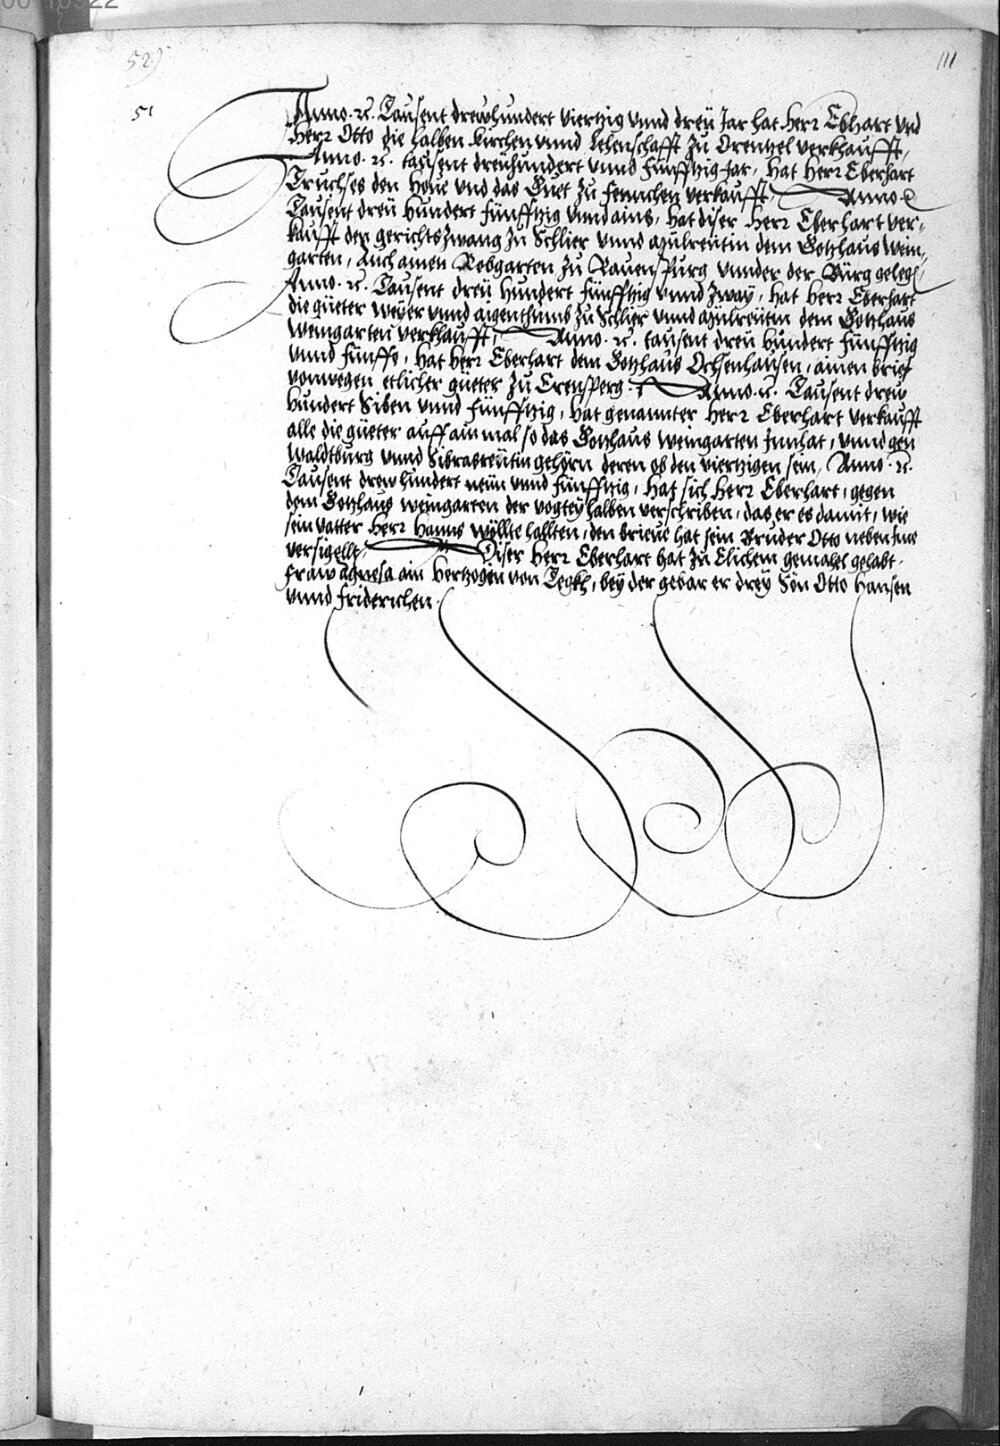 52)
111
51
Anno. rc. Tausent drewhundert viertzig vnnd dreü Jar hat Herr Ebhart vnd
Herr Otto die halben Kirchen vnnd lehenschafft zu Drentzel verkhaufft,
Anno. rc. tausent dreuhundert vnnd Fünfftzig Jar, hat Herr Eberhart
Truchses den Houe vnd das Guet zu verkaufft, Anno. rc
Tausent dreü hundert fünfftzig vnnd ains, hat diser Herr Eberhart ver-
kaufft den gerichtszwang zu Schlier vnnd dem Gotzhaus Wein-
garten, Auch ainen Rebgarten zu Rauenspurg vnnder der Bürg gelegen,
Anno. rc. Tausent dreü hundert fünfftzig vnnd zway, hat Herr Eberhart
die güeter weyer vnnd aigenthumb zu Schlier vnnd dem Gotzhaus
Weingarten verkhaufft, Anno. rc. tausent dreü hundert fünfftzig
vnnd fünffe, hat Herr Eberhart dem Gotzhaus Ochsenhausen, ainen brief
vonwegen etlicher güeter zu Erensperg. Anno. rc. Tausent drew
hundert Siben vnnd fünfftzig, hat genannter Herr Eberhart verkaufft
alle die güeter auff ain mal so das Gotzhaus Weingarten Innhat, vnnd gen
Waldtburg vnnd gehörn deren ob den viertzigen sein, Anno. rc.
Tausent drewhundert neün vnnd fünfftzig, hat sich Herr Eberhart, gegen
dem Gotzhaus weingarten der vogtey halben verschriben, das er es damit, wie
sein vatter Herr Hanns wöllte hallten, den brieue hat sein Bruder Otto neben Ime
versigellt, Diser Herr Eberhart hat zu Elichem gemahel gehabt
fraw Agnesa ain Hertzogin von Tegkh, bey der gebar er drey Sön Otto Hansen
vnnd Friderichen.